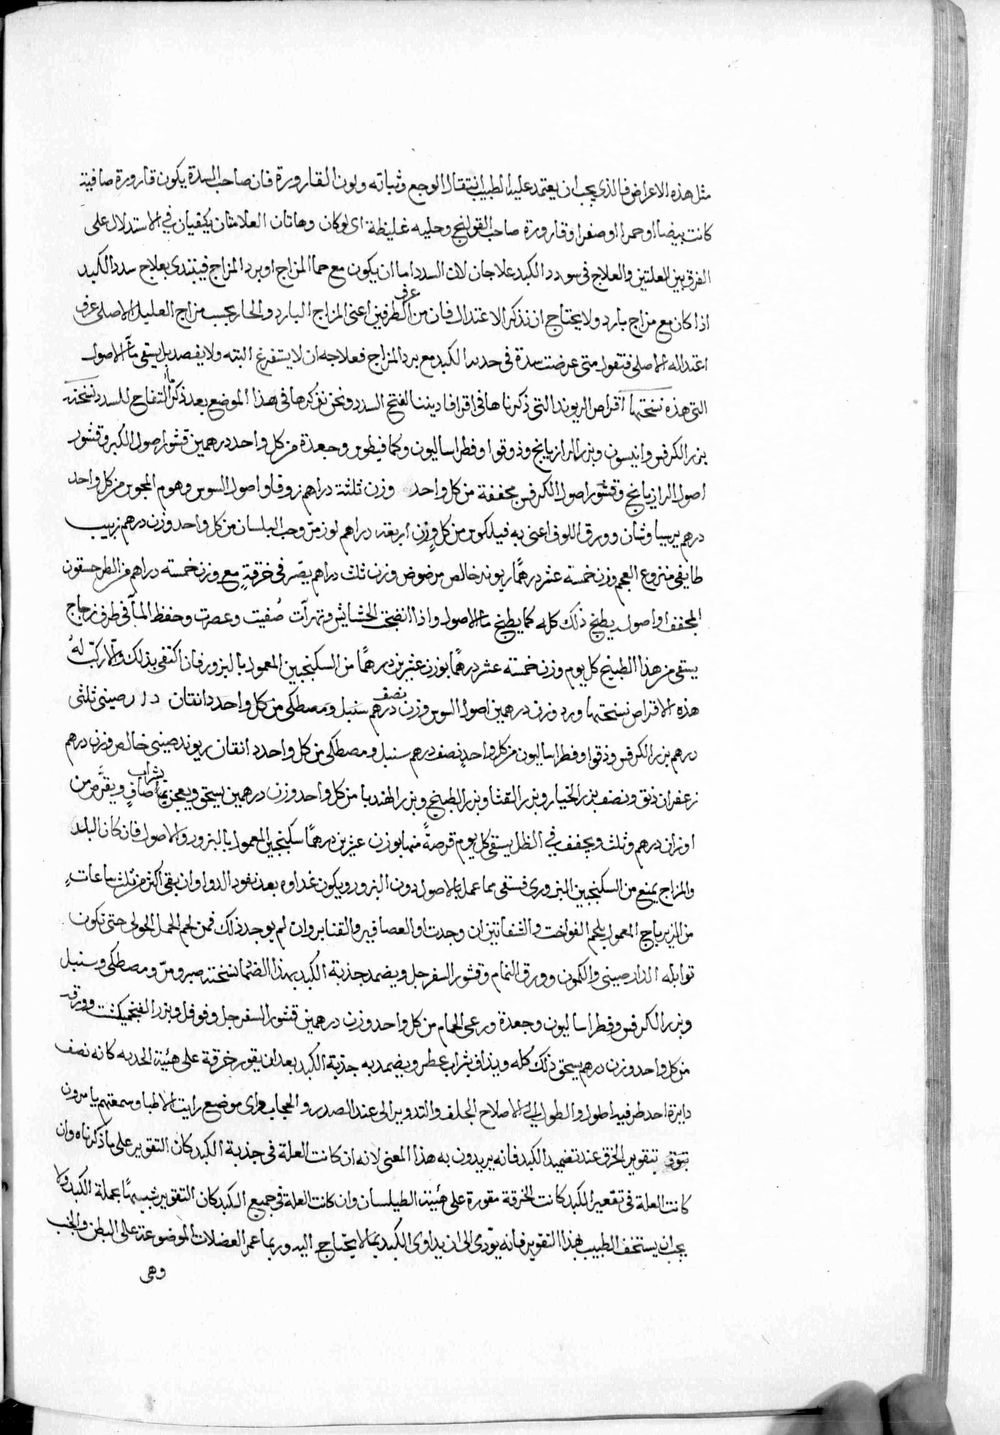 مثل هذه الاعراض فالذى يجب ان يعتمد عليه الطبيب انتقال الوجع وثباته ولون القارورة فان صاحب السدة يكون قارورة صافية
كانت بيضا او حمرا او صفرا وقارورة صاحب القولنج وحليه غليظة اى لو كان وهاتان العلامتان يكفيان فى الاستدلال على
الفرق بين العلتين والعلاج فى سدد الكبد علاجان لان السدد اما ان يكون مع حما المزاج او برد المزاج فيبتدى بعلاج سدد الكبد
اذا كان مع مزاج بارد ولا يحتاج ان نذكر الاعتدال فان من عرف الطرفين اعنى المزاج البارد والحار بحسب مزاج العليل الاصلى عرف
اعتداله الاصلى فنقول متى عرضت سدة فى حدبة الكبد مع برد المزاج فعلاجه ان لا يستفرغ البته ولا يفصد بل يسقى ما الاصول
التى هذه نسختها اقراص الريوند التى ذكرناها فى اقرافاديننا لفتح السدد ونحن نذكرها فى هذا الموضع بعد ذكرنا التفاح للسدد نسخته
بزر الكرفس وانيسون وبزر الرازيانج وذوقوا وفطراساليون وكمافيطوس وجعدة من كل واحد درهمين قشور اصول الكبر وقشور
اصول الرازيانج وقشور اصول الكرفس مجففة من كل واحد وزن ثلثة دراهم زوفا واصول السوس وهوم المجوس من كل واحد
درهم برسياوشان وورق اللوف اعنى به فيلكوس من كل وزن اربعة دراهم لوز مر وحب البلسان من كل واحد وزن درهم زبيب
طايفى منزوع العجم وزن خمسة عشر درهما ريوند خالص مرضوض وزن ثلث دراهم يصر فى خرقة مع وزن خمسة دراهم من الطرحسقون
المجفف او اصوله يطبخ ذلك كله كما يطبخ ما الاصول واذا انضجت الحشايش وتهرات صفيت وعصرت وحفظ الما فى ظرف زجاج
يسقى من هذا الطبيخ كل يوم وزن خمسة عشر درهما بوزن عشرين درهما من السكنجبين المعمول بالبزور فان اكتفى بذلك والا ركب له
هذه الاقراص نسختها ورد وزن درهمين اصول السوس وزن نصف درهم سنبل ومصطكى من كل واحد دانقان دار صينى ثلثى
درهم بزر الكرفس وذوقوا وفطراساليون من كل واحد نصف درهم سنبل ومصطكى من كل واحد دانقان ريوند صينى خالص وزن درهم
زعفران دنق ونصف بزر الخيار وبزر القثا وبزر البطيخ وبزر الهندبا من كل واحد وزن درهمين يسحق ويعجن بشراب صاف ويقرص من
اوزان درهم وثلث ويجفف فى الظل يسقى كل يوم قرصة منها بوزن عشرين درهما سكنجبين المعمول بالبزور والاصول فان كان البلد
والمزاج يمنع من السكنجبين البزورى فسقى مما عمل بالاصول دون البزور ويكون غداوه بعد نفود الدوا وان بقى اكثر من ثلث ساعات
من الزيرباج المعمول بلحم الفواخت والشفانين ان وجدت او العصافير والقنابر وان لم يوجد ذلك فمن لحم الحمل الحولى حتى تكون
توابله الدارصينى والكمون وورق النمام وقشور السفرجل ويضمد جذبة الكبد بهذا الضماد نسخته صبر ومر ومصطكى وسنبل
وبزر الكرفس وفطراساليون وجعدة ورعى الحمام من كل واحد وزن درهمين قشور السفرجل وفوفل وبزر الفنجنكشت وورقه
من كل واحد وزن درهم يسحق ذلك كله ويذاف بشراب عطر ويضمد به جذبة الكبد بعد ان يقور خرقة على هيئة الحدبه كانه نصف
دايرة احد طرفيه اطول والطول الى الاضلاع الخلف والتدوير الى عند الصدر والحجاب واى موضع رايت الاطبا وسمعتهم يامرون
بتقوير الخرق عند تضميد الكبد فانه يريدون به هذا المعنى لانه ان كانت العلة فى جذبة الكبد كان التقوير على ما ذكرناه وان
كانت العلة فى تقعير الكبد كانت الخرقة مقورة على هيئة الطيلسان وان كانت العلة فى جميع الكبد كان التقوير شبيها بجملة الكبد ولا
يجب ان يستخف الطبيب بهذا التقوير فانه يودى الى ان يداوى الكبد بما لا يحتاج اليه وربما عمر العضلات الموضوعة على البطن والجنب
وهى